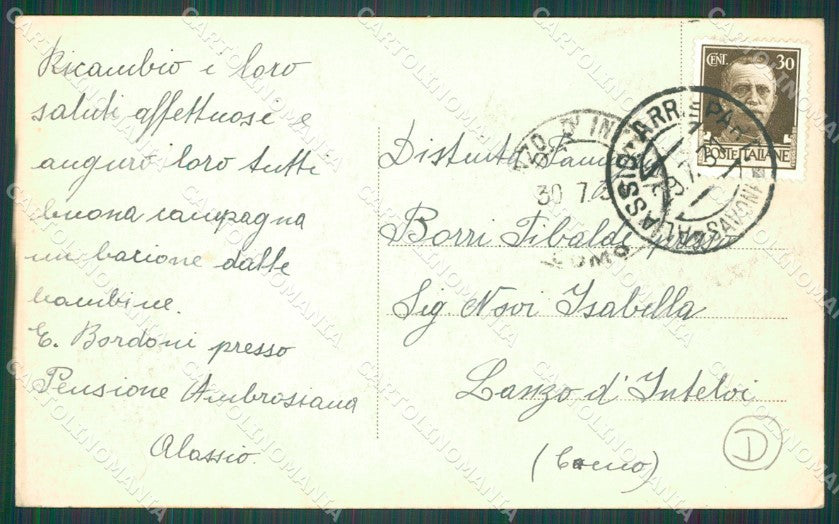 Ricambio i loro
saluti affettuose e
auguro loro tutti
buona campagna
un bacione dalle
bambine.
E. Bordoni presso
Pensione Ambrosiana
Alassio.
CENT. 30
POSTE ITALIANE
ALASSIO ARR. PAR.
29.7.
(SAVONA)
30 7.3
COMO
Distinta
Borri Tibaldi
Sig Novi Isabella
Lanzo d'Intelvi
(Como)
D
CARTOLINOMANIA